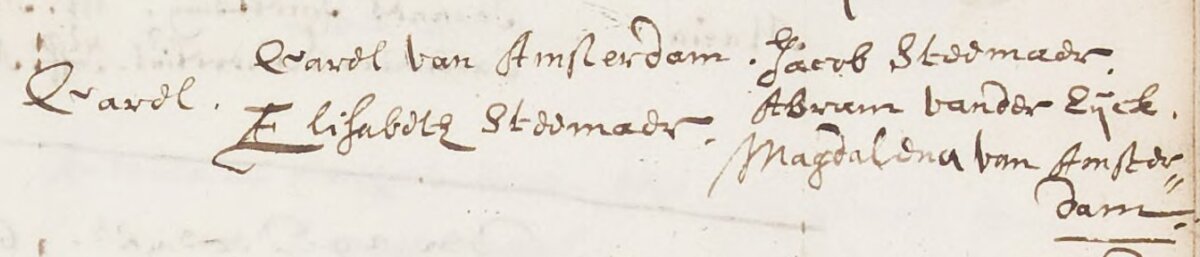 Carel.
Carel van Amsterdam.
Elisabeth Steemaer.
Jacob Steemaer.
Abram vander Eyck.
Magdalena van Amster=
dam.